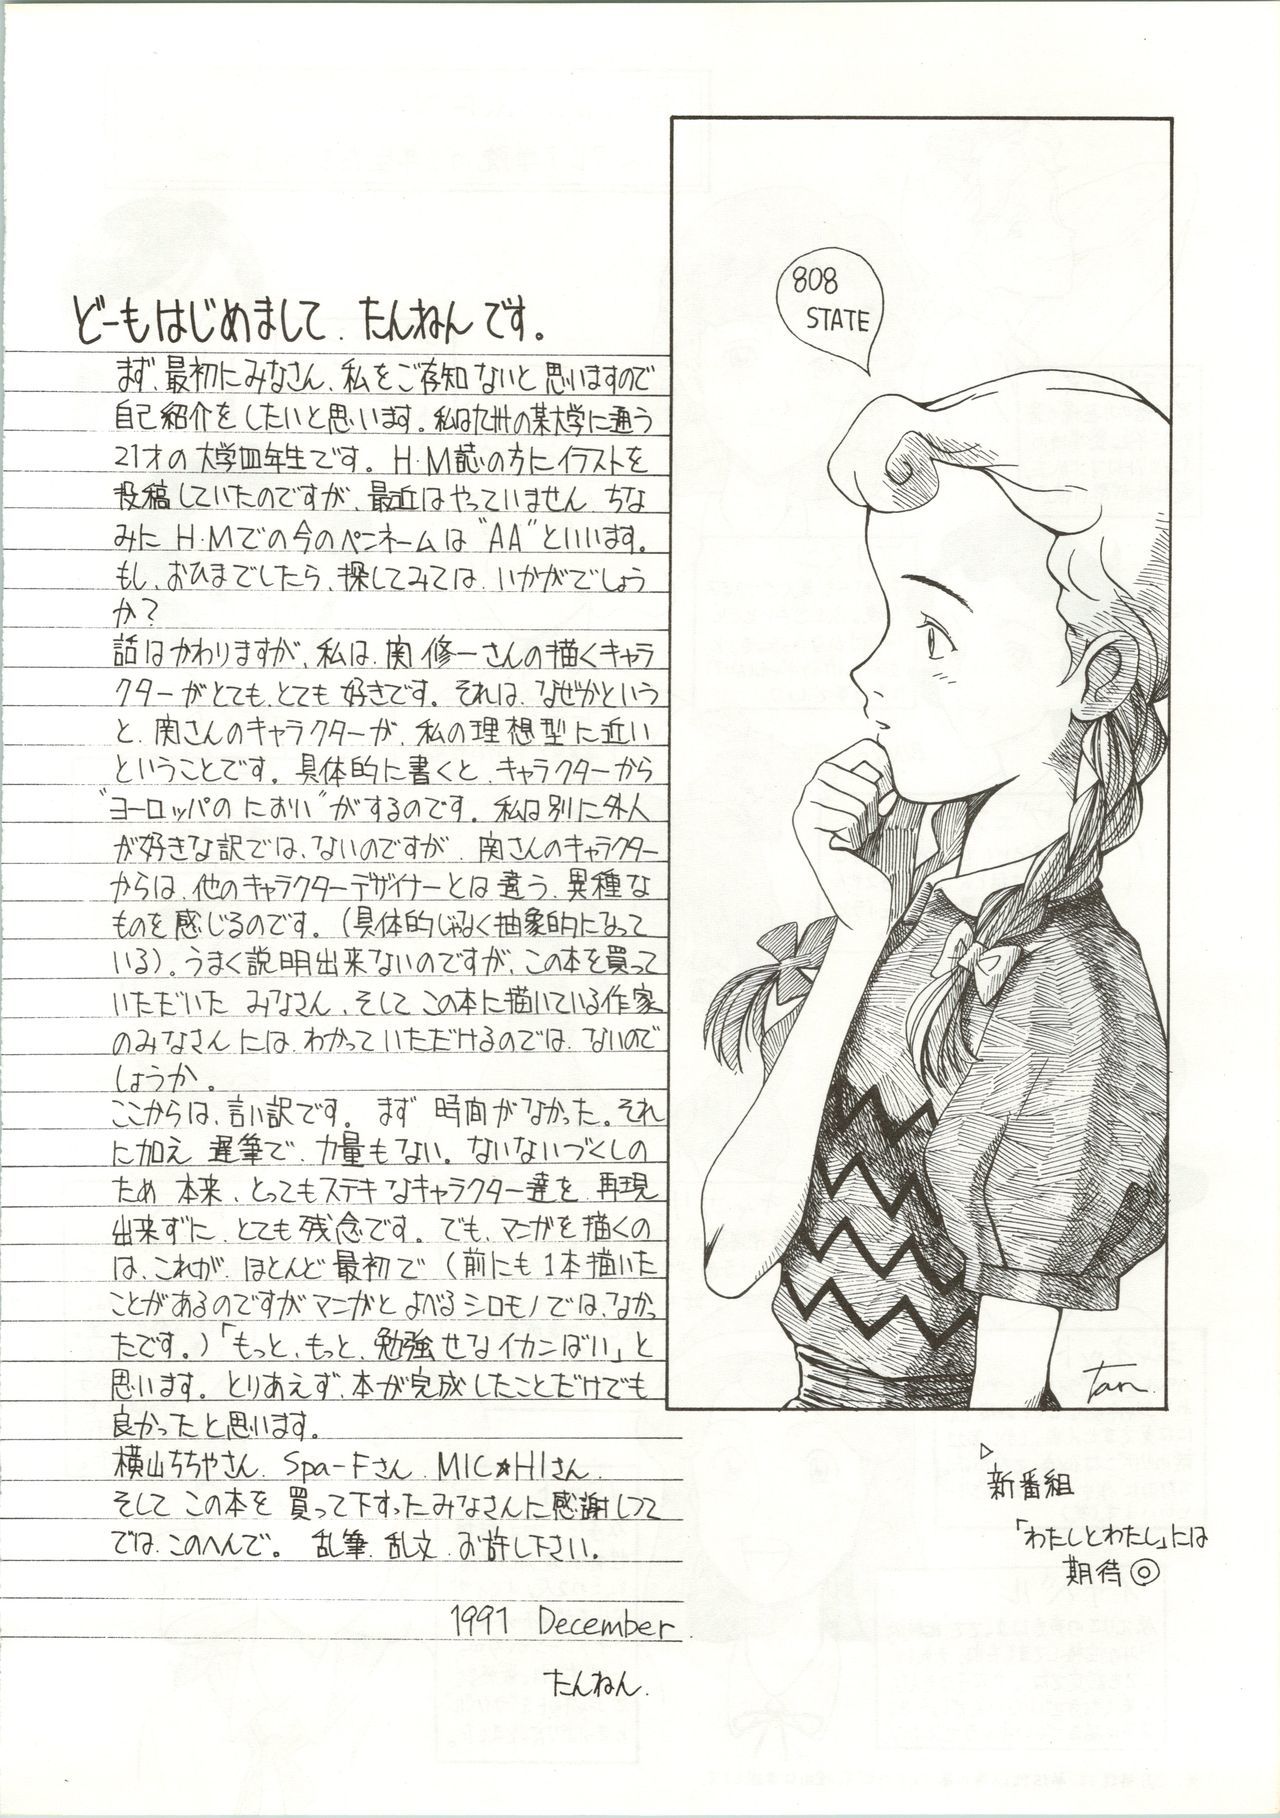 どーもはじめまして、たんねんです。
まず、最初にみなさん、私をご存知ないと思いますので
自己紹介をしたいと思います。私は九州の某大学に通う
21才の大学四年生です。H・M誌の方にイラストを
投稿していたのですが、最近はやっていません。ちな
みにH・Mでの今のペンネームは"AA"といいます。
もし、おひまでしたら、探してみては、いかがでしょう
か?
話はかわりますが、私は、関修一さんの描くキャラ
クターがとても、とても好きです。それは、なぜかという
と、関さんのキャラクターが、私の理想型に近い
ということです。具体的に書くと、キャラクターから
"ヨーロッパのにおい"がするのです。私は別に外人
が好きな訳では、ないのですが、関さんのキャラクター
からは、他のキャラクターデザイナーとは違う、異種な
ものを感じるのです。(具体的じゃなく抽象的になって
いる)。うまく説明出来ないのですが、この本を買って
いただいたみなさん、そしてこの本に描いている作家
のみなさんには、わかっていただけるのでは、ないので
しょうか。
ここからは、言い訳です。まず時間がなかった。それ
に加え遅筆で、力量もない。ないないづくしの
ため本来、とってもステキなキャラクター達を、再現
出来ずに、とても残念です。でも、マンガを描くの
は、これが、ほとんど最初で(前にも1本描いた
ことがあるのですがマンガとよべるシロモノでは、なかっ
たです。)「もっと、もっと、勉強せなイカンばい」と
思います。とりあえず、本が完成したことだけでも
良かったと思います。
横山ちちやさん、Spa-Fさん、MIC★HIさん、
そしてこの本を買って下すったみなさんに感謝しつつ
では、このへんで。乱筆、乱文、お許し下さい。
1991 December
たんねん.
808
STATE
tan.
▷
新番組
「わたしとわたし」には
期待◎